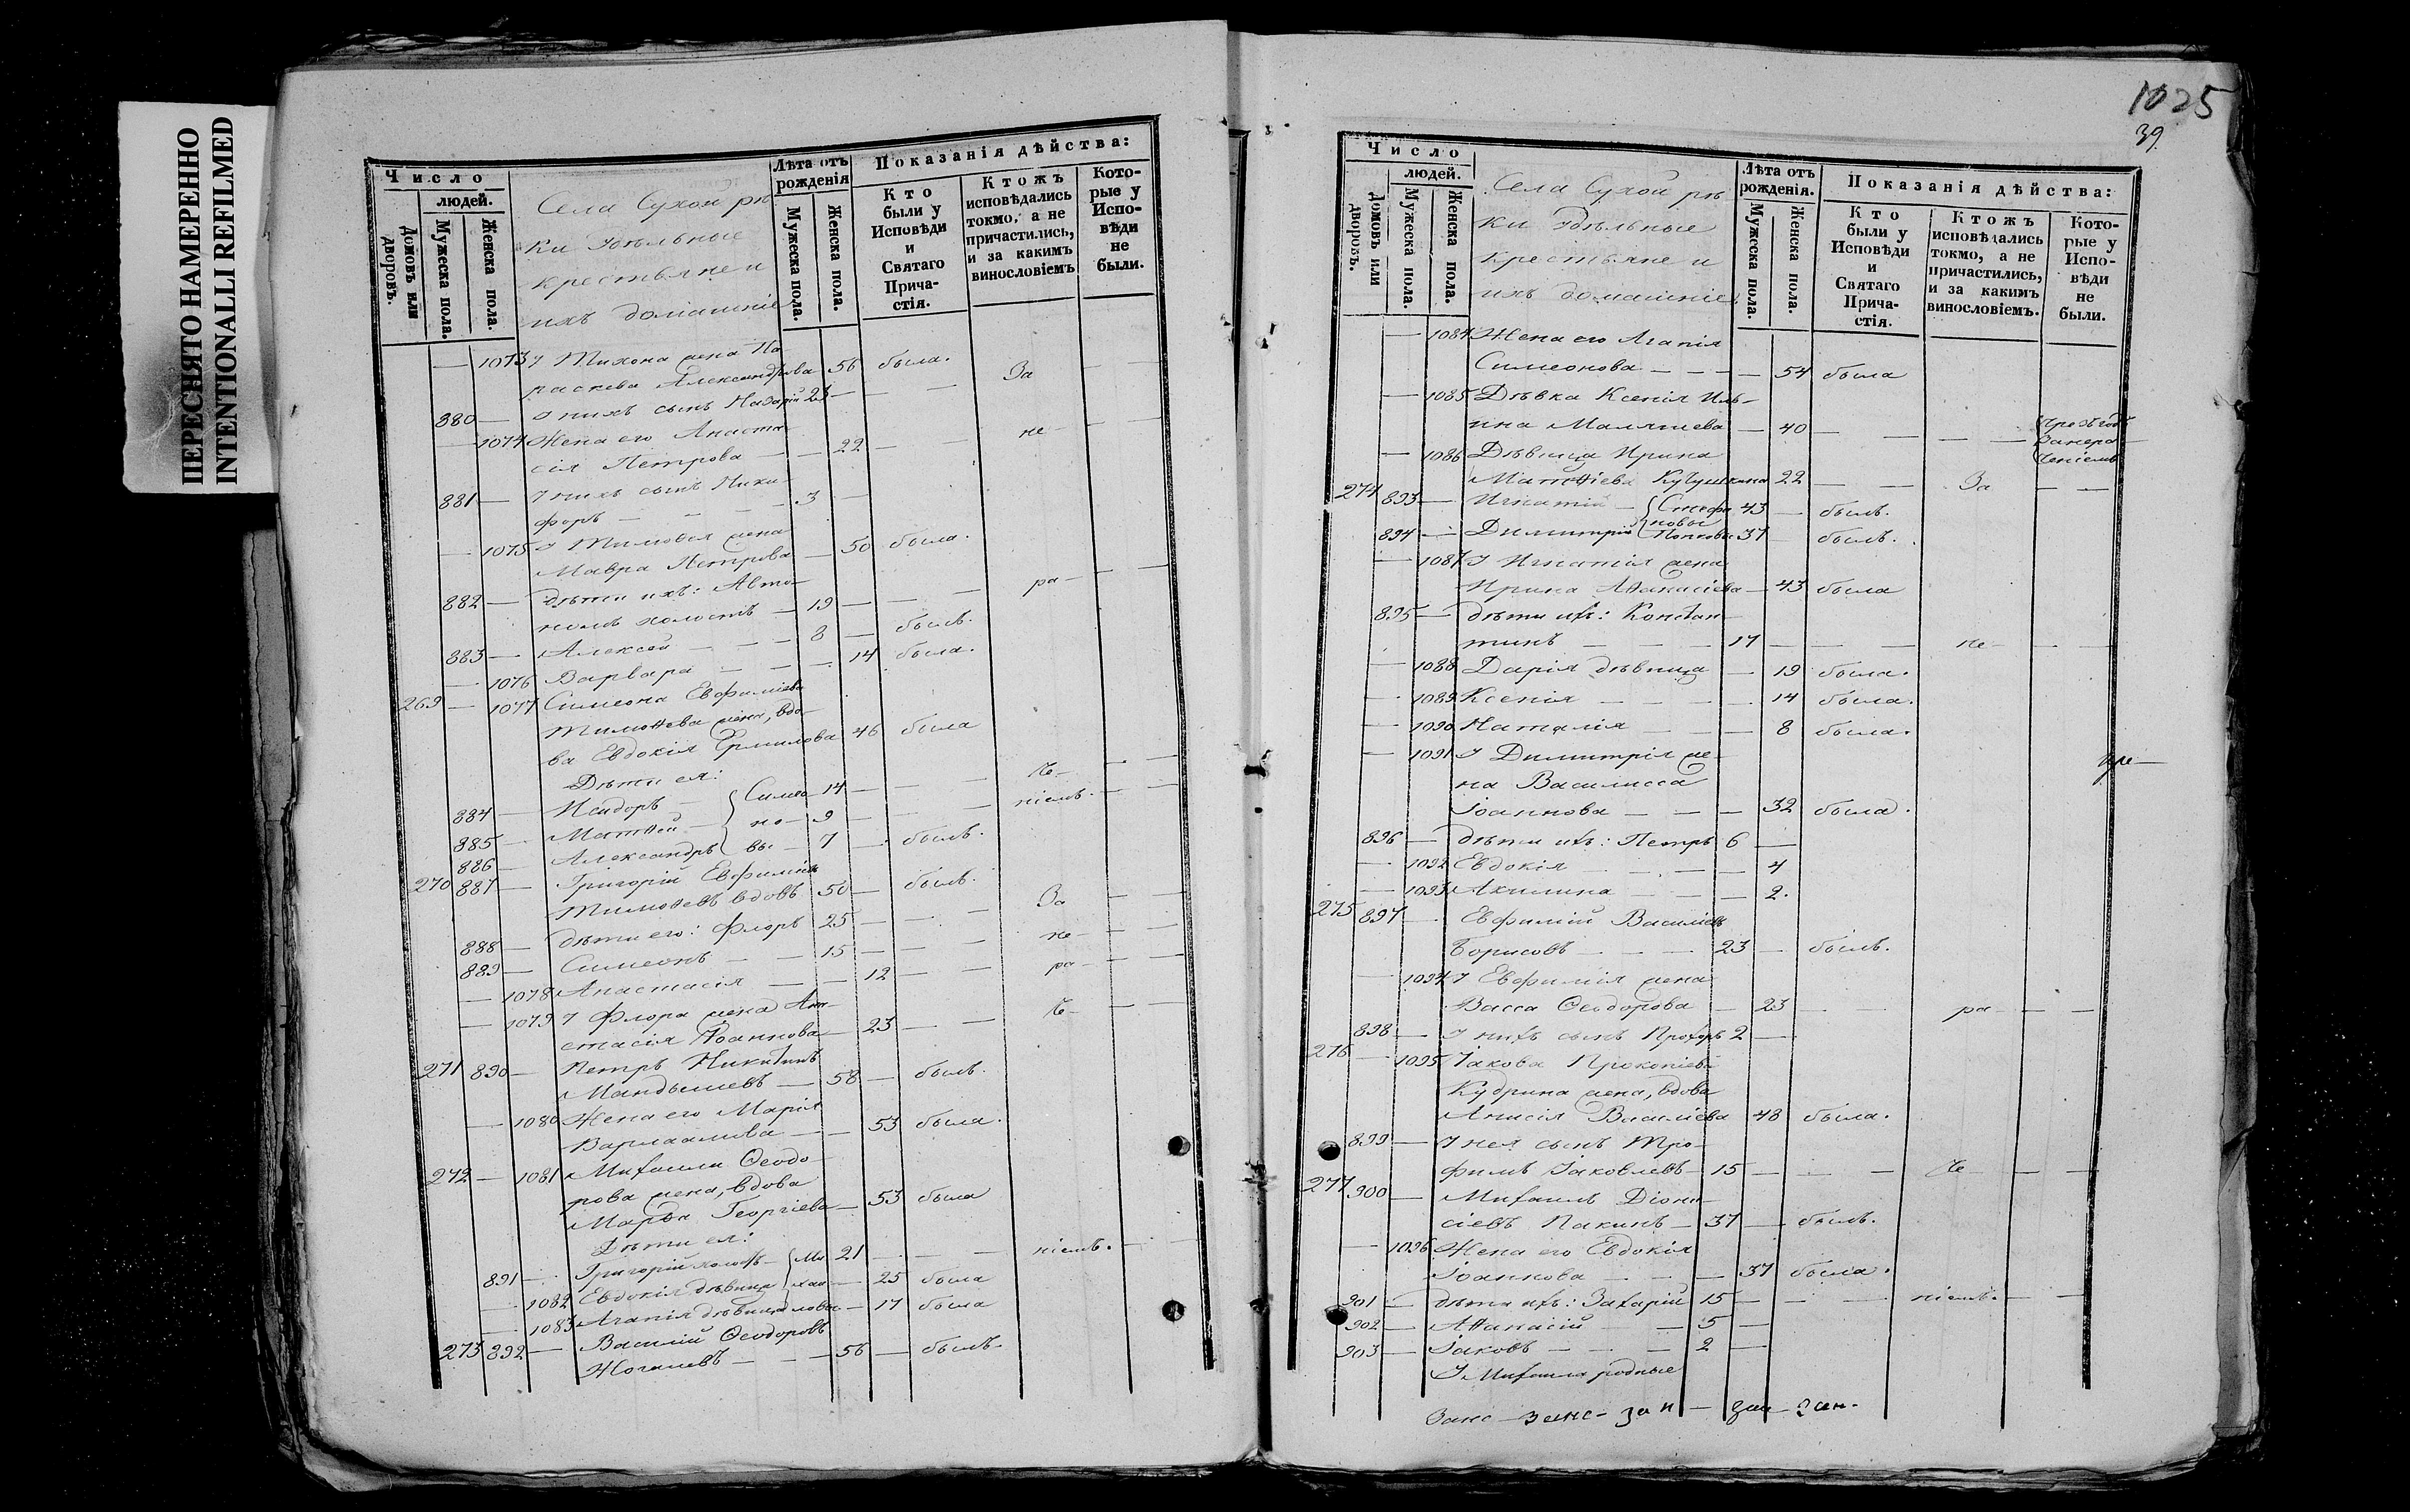 ПЕРЕСНЯТО НАМЕРЕННО
INTENTIONALLI REFILMED
Число
людей.
Домовъ или дворовъ.
Мужеска пола.
Женска пола.
Села Сухой рѣ
ки удѣльные
крестьяне и
ихъ домашніе
Лѣта отъ рожденія
Мужеска пола.
Женска пола.
Показанія дѣйства:
Кто были у Исповѣди и Святаго Прича-стія.
Ктожъ исповѣдались токмо, а не причастились, и за какимъ винословіемъ
Кото-рые у Испо-вѣди не были.
— 1073 У Тихона жена Па
раскева Александрова 56 была.
880 — У нихъ сынъ Назарій 23 — — За —
— 1074 Жена его Анаста
сія Петрова — — 22 — — не — —
881 — У нихъ сынъ Ники
форъ — — — 3 —
— 1075 У Тимоѳея жена
Мавра Петрова — 50 была.
882 — дѣти ихъ: Авто-
номъ холостъ — 19 — — — ра — —
883 — Алексей — — 8 — былъ.
— 1076 Варвара — — — 14 была.
269 — 1077 Симеона Евфиміева
Тимоѳева жена, вдо-
ва Евдокія Ермилова 46 была
Дѣти ея:
884 — Исидоръ — Симео 14 — — — че — —
885 — Матѳей — но — 9 — — — ніемъ. — —
886 — Александръ вы — 7 — былъ.
270 887 — Григорій Евфиміевъ
Тимоѳевъ вдовъ 50 — былъ.
888 — дѣти его: Флоръ 25 — — — За — —
889 — Симеонъ — — 15 — — — не — —
— 1078 Анастасія — — 12 — — ра — —
— 1079 У Флора жена Ан-
стасія Іоаннова — 23 — — че — —
271 890 — Петръ Никитинъ
Мандышевъ — 58 — былъ.
— 1080 Жена его Марія
Варлаамова — — 53 была.
272 — 1081 Михаила Ѳеодо-
рова жена, вдова
Марѳа Георгіева — 53 была
Дѣти ея:
891 — Григорій холостъ — Ми 21 — — — ніемъ. — —
— 1082 Евдокія дѣвица хаи — 25 была
— 1083 Агапія дѣвица ловы — 17 была
273 892 — Василій Ѳеодоровъ
Жогалевъ — — — 56 — былъ.
1025
39.
Число
людей.
Домовъ или дворовъ.
Мужеска пола.
Женска пола.
Села Сухой рѣ
ки удѣльные
крестьяне и
ихъ домашніе
Лѣта отъ рожденія.
Мужеска пола.
Женска пола.
Показанія дѣйства:
Кто были у Исповѣди и Святаго Прича-стія.
Ктожъ исповѣдались токмо, а не причастились, и за какимъ винословіемъ.
Кото-рые у Испо-вѣди не были.
— 1084 Жена его Агапія
Симеонова — — — 54 была
— 1085 Дѣвка Ксенія Иль-
ина — 40 — — —
— 1086 Дѣвица Ирина
Матѳіева 22 — — За — —
274 893 — Игнатій — Стефа 43 — былъ.
894 — Димитрій новы 37 былъ.
— 1087 У Игнатія жена
Ирина Аѳанасіева — 43 была
895 — дѣти ихъ: Констан-
тинъ — — — 17 — — — не — — —
— 1088 Дарія дѣвица — 19 была.
— 1089 Ксенія — — — 14 была.
— 1090 Наталія — — — 8 была.
— 1091 У Димитрія же-
на Василисса
Іоаннова — — — 32 была.
896 — дѣти ихъ: Петръ 6 —
— 1092 Евдокія — — — — 4
— 1093 Акилина — — — 2.
275 897 — Евфимій Василіевъ
Борисовъ — — — 23 — былъ.
— 1094 У Евфимія жена
Васса Ѳеодорова — 23 — — ра — —
898 — У нихъ сынъ Прохоръ 2 —
276 — 1095 Іакова Прокопіева
Кудрина жена, вдова
Анисія Василіева 48 была.
899 — У нея сынъ Тро-
фимъ Іаковлевъ — 15 — — — че — —
277 900 — Михаилъ Діони-
сіевъ Пакинъ — 37 — былъ.
— 1096 Жена его Евдокія
Іоаннова — — — 37 была.
901 — дѣти ихъ: Захарій 15 — — — ніемъ. — —
902 — Аѳанасій — — 5 —
903 — Іаковъ — — — 2 —
У Михаила родные